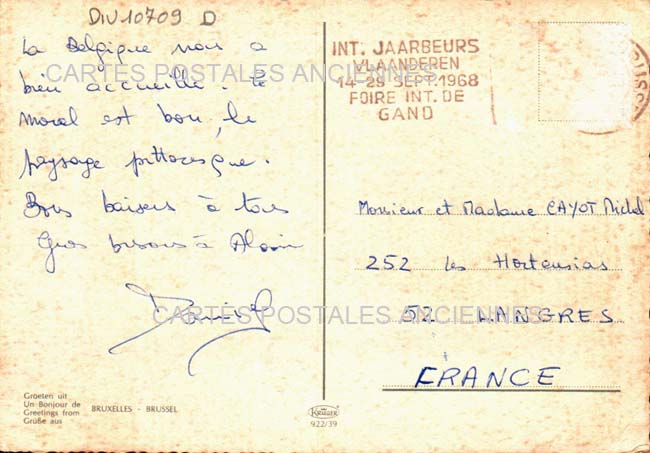 DIV10709 D
La Belgique nous a
bien accueilli. Le
moral est bon, le
paysage pittoresque.
Bons baisers à tous
Gros bisous à Alain
Daniel
CARTES POSTALES ANCIENNES
CARTES POSTALES ANCIENNES
Groeten uit
Un Bonjour de
Greetings from
Grüße aus
BRUXELLES - BRUSSEL
KRÜGER
922/39
INT. JAARBEURS
VLAANDEREN
14-29 SEPT. 1968
FOIRE INT. DE
GAND
Monsieur et Madame CAYOT Michel
252 les Hortensias
52 LANGRES
FRANCE